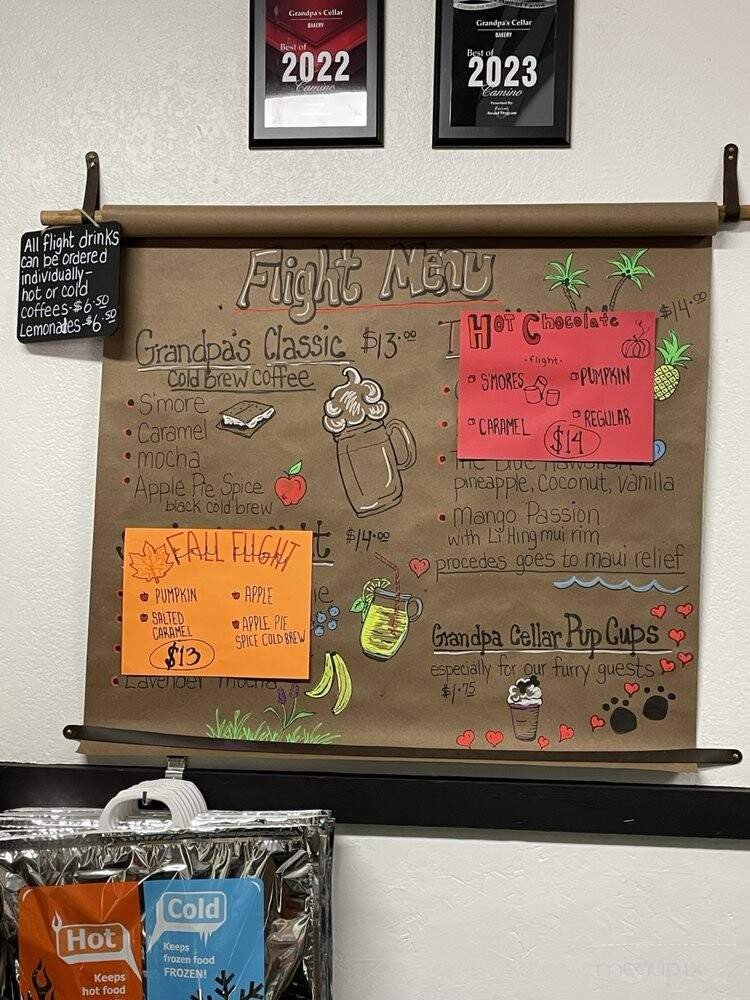 Grandpa's Cellar
BAKERY
Best of
2022
Camino
Grandpa's Cellar
BAKERY
Best of
2023
Camino
Presented By:
Award Program
All flight drinks
can be ordered
individually-
hot or cold
coffees-$6.50
Lemonades-$6.50
Flight Menu
Grandpa's Classic $13.00
cold brew coffee
S'more
Caramel
mocha
Apple Pie Spice
black cold brew
$14.00
FALL FLIGHT
PUMPKIN
SALTED
CARAMEL
APPLE
APPLE PIE
SPICE COLD BREW
$13
Lavender mocha
$14.00
HOT Chocolate
·flight·
S'MORES
PUMPKIN
CARAMEL
REGULAR
$14
The Blue Hawaiian
pineapple, coconut, vanilla
Mango Passion
with Li Hing mui rim
procedes goes to maui relief
Grandpa Cellar Pup Cups
especially for our furry guests
$1.75
Hot
Keeps
hot food
Cold
Keeps
frozen food
FROZEN!